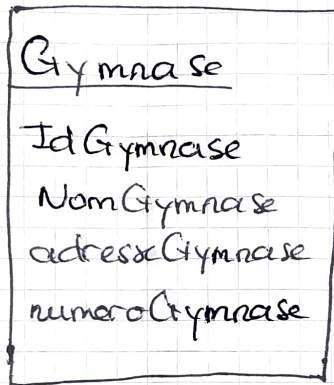 Gymnase
IdGymnase
NomGymnase
adresseGymnase
numeroGymnase